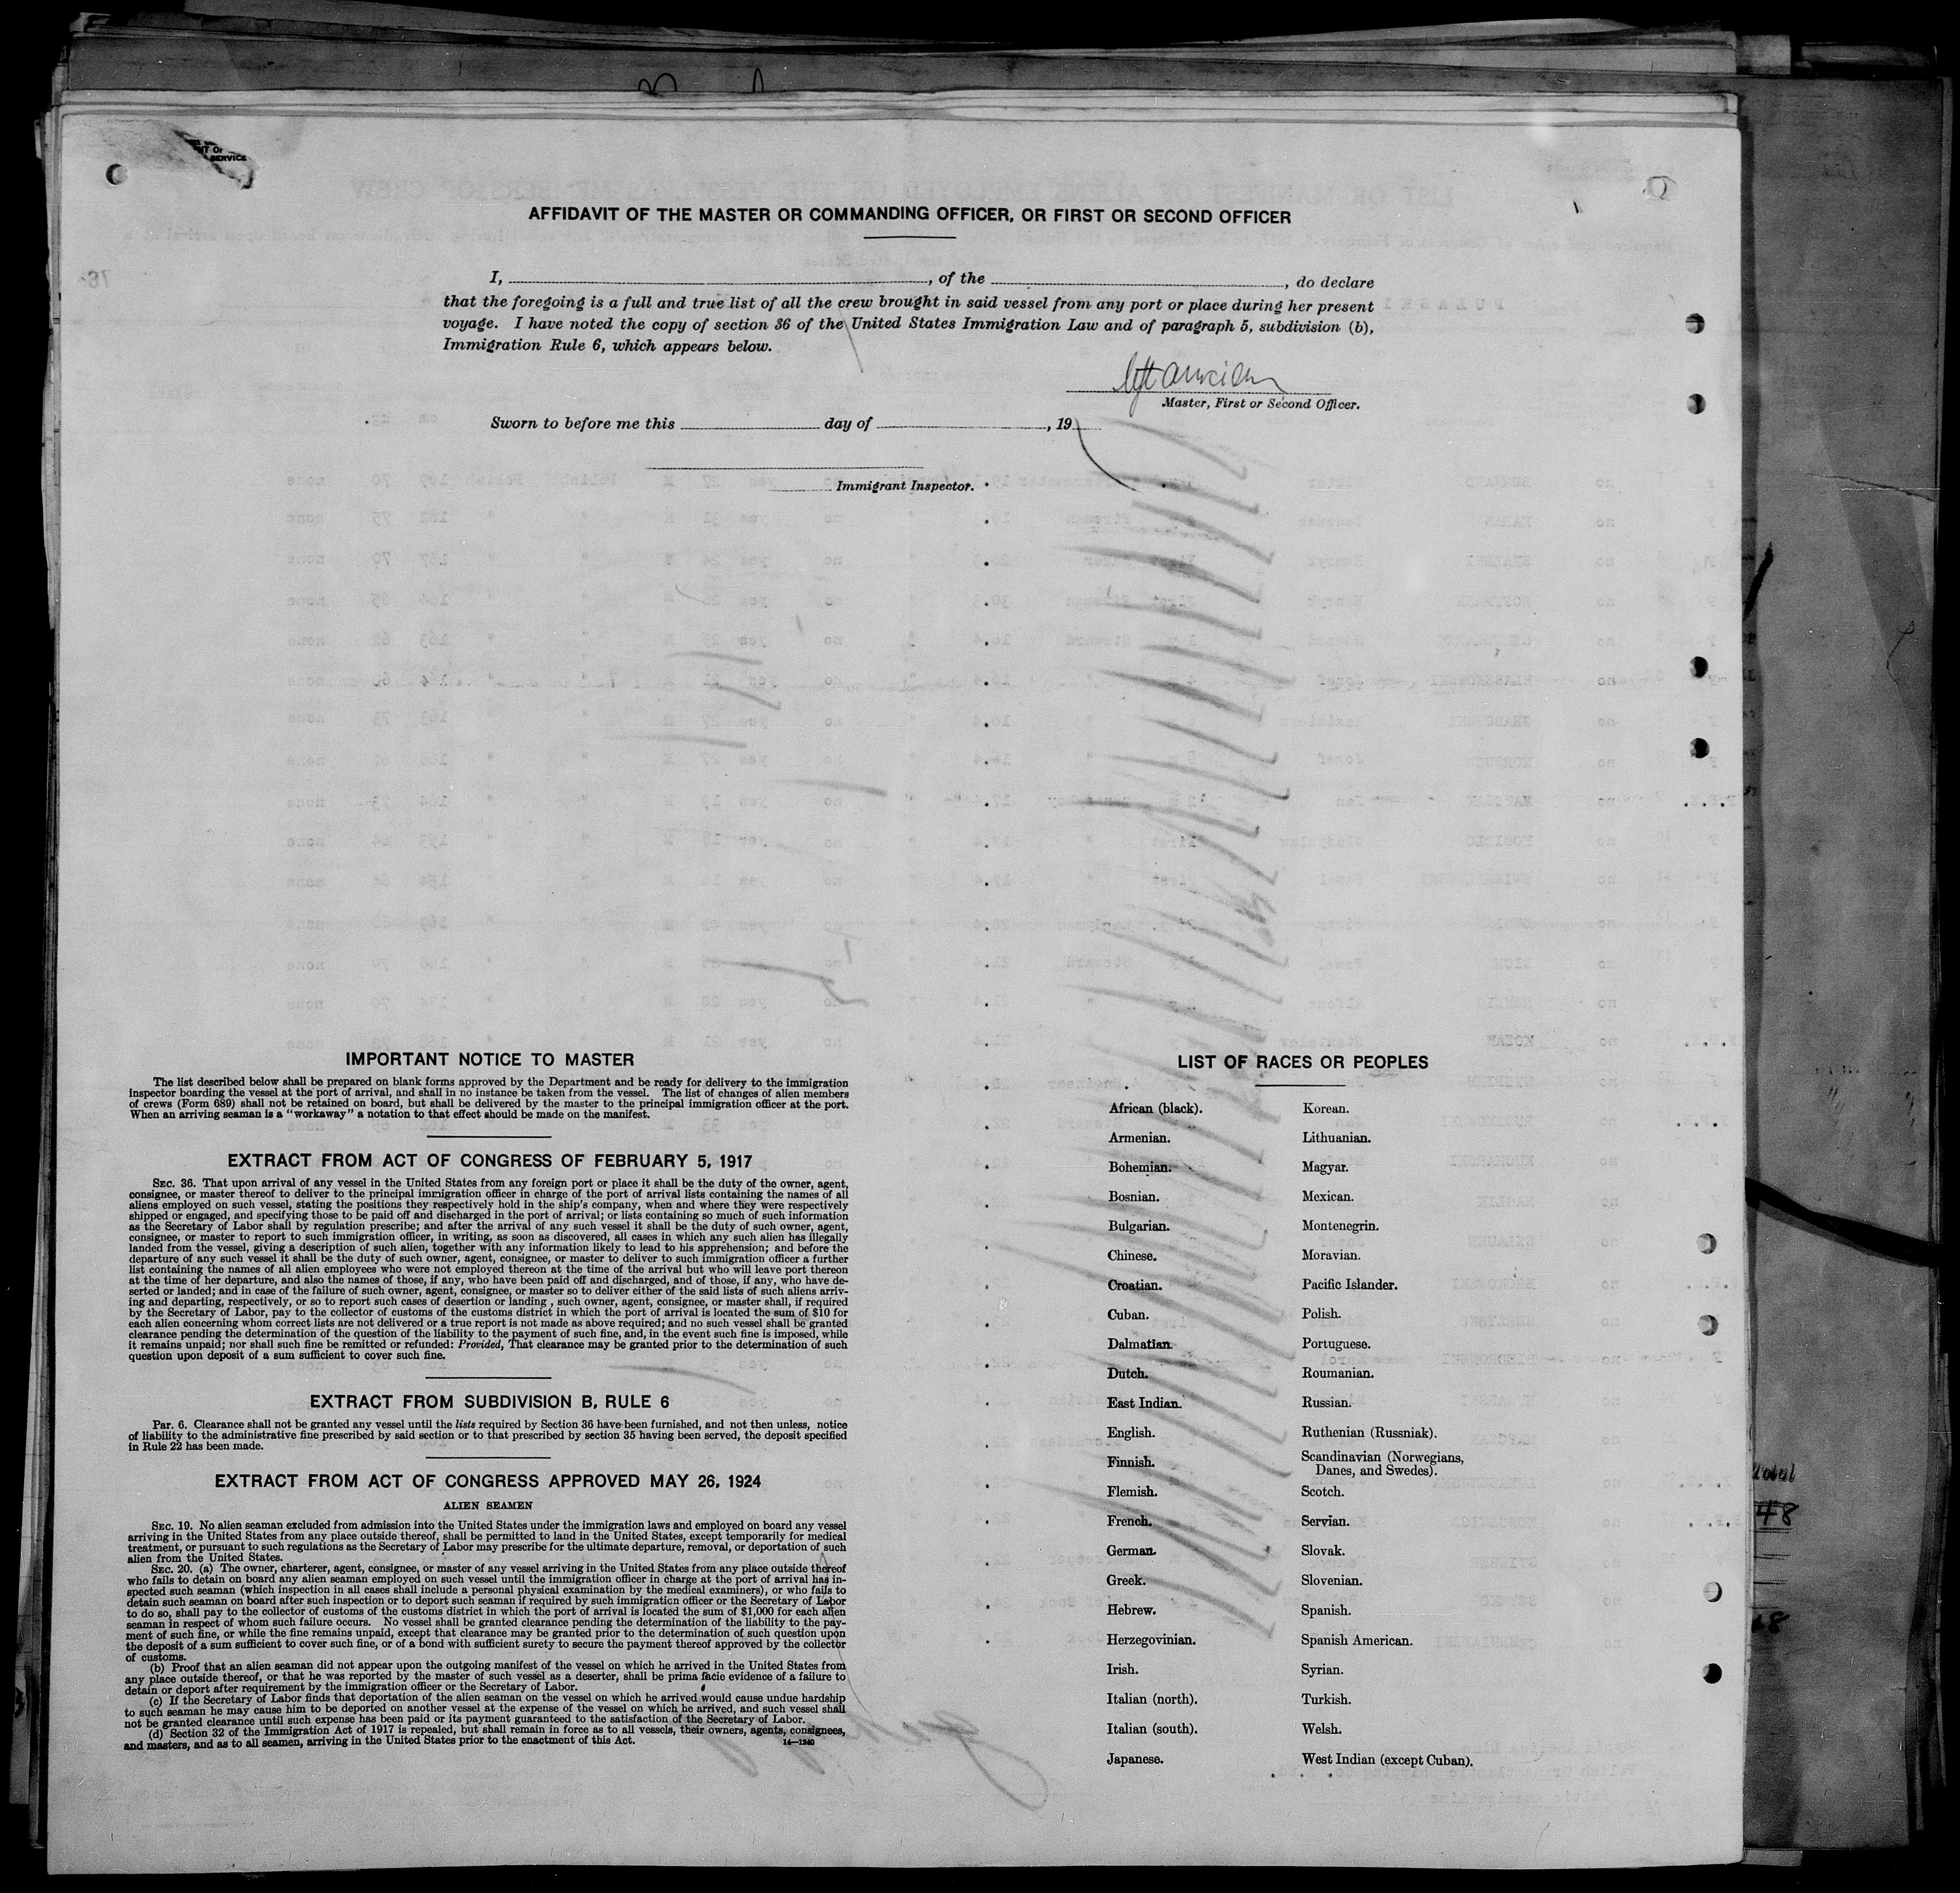 NT OF
SERVICE
AFFIDAVIT OF THE MASTER OR COMMANDING OFFICER, OR FIRST OR SECOND OFFICER
I, , of the , do declare
that the foregoing is a full and true list of all the crew brought in said vessel from any port or place during her present
voyage. I have noted the copy of section 36 of the United States Immigration Law and of paragraph 5, subdivision (b),
Immigration Rule 6, which appears below.
Master, First or Second Officer.
Sworn to before me this day of , 19
Immigrant Inspector.
IMPORTANT NOTICE TO MASTER
The list described below shall be prepared on blank forms approved by the Department and be ready for delivery to the immigration
inspector boarding the vessel at the port of arrival, and shall in no instance be taken from the vessel. The list of changes of alien members
of crews (Form 689) shall not be retained on board, but shall be delivered by the master to the principal immigration officer at the port.
When an arriving seaman is a "workaway" a notation to that effect should be made on the manifest.
EXTRACT FROM ACT OF CONGRESS OF FEBRUARY 5, 1917
SEC. 36. That upon arrival of any vessel in the United States from any foreign port or place it shall be the duty of the owner, agent,
consignee, or master thereof to deliver to the principal immigration officer in charge of the port of arrival lists containing the names of all
aliens employed on such vessel, stating the positions they respectively hold in the ship's company, when and where they were respectively
shipped or engaged, and specifying those to be paid off and discharged in the port of arrival; or lists containing so much of such information
as the Secretary of Labor shall by regulation prescribe; and after the arrival of any such vessel it shall be the duty of such owner, agent,
consignee, or master to report to such immigration officer, in writing, as soon as discovered, all cases in which any such alien has illegally
landed from the vessel, giving a description of such alien, together with any information likely to lead to his apprehension; and before the
departure of any such vessel it shall be the duty of such owner, agent, consignee, or master to deliver to such immigration officer a further
list containing the names of all alien employees who were not employed thereon at the time of the arrival but who will leave port thereon
at the time of her departure, and also the names of those, if any, who have been paid off and discharged, and of those, if any, who have de-
serted or landed; and in case of the failure of such owner, agent, consignee, or master so to deliver either of the said lists of such aliens arriv-
ing and departing, respectively, or so to report such cases of desertion or landing , such owner, agent, consignee, or master shall, if required
by the Secretary of Labor, pay to the collector of customs of the customs district in which the port of arrival is located the sum of $10 for
each alien concerning whom correct lists are not delivered or a true report is not made as above required; and no such vessel shall be granted
clearance pending the determination of the question of the liability to the payment of such fine, and, in the event such fine is imposed, while
it remains unpaid; nor shall such fine be remitted or refunded: Provided, That clearance may be granted prior to the determination of such
question upon deposit of a sum sufficient to cover such fine.
EXTRACT FROM SUBDIVISION B, RULE 6
Par. 6. Clearance shall not be granted any vessel until the lists required by Section 36 have been furnished, and not then unless, notice
of liability to the administrative fine prescribed by said section or to that prescribed by section 35 having been served, the deposit specified
in Rule 22 has been made.
EXTRACT FROM ACT OF CONGRESS APPROVED MAY 26, 1924
ALIEN SEAMEN
SEC. 19. No alien seaman excluded from admission into the United States under the immigration laws and employed on board any vessel
arriving in the United States from any place outside thereof, shall be permitted to land in the United States, except temporarily for medical
treatment, or pursuant to such regulations as the Secretary of Labor may prescribe for the ultimate departure, removal, or deportation of such
alien from the United States.
SEC. 20. (a) The owner, charterer, agent, consignee, or master of any vessel arriving in the United States from any place outside thereof
who fails to detain on board any alien seaman employed on such vessel until the immigration officer in charge at the port of arrival has in-
spected such seaman (which inspection in all cases shall include a personal physical examination by the medical examiners), or who fails to
detain such seaman on board after such inspection or to deport such seaman if required by such immigration officer or the Secretary of Labor
to do so, shall pay to the collector of customs of the customs district in which the port of arrival is located the sum of $1,000 for each alien
seaman in respect of whom such failure occurs. No vessel shall be granted clearance pending the determination of the liability to the pay-
ment of such fine, or while the fine remains unpaid, except that clearance may be granted prior to the determination of such question upon
the deposit of a sum sufficient to cover such fine, or of a bond with sufficient surety to secure the payment thereof approved by the collector
of customs.
(b) Proof that an alien seaman did not appear upon the outgoing manifest of the vessel on which he arrived in the United States from
any place outside thereof, or that he was reported by the master of such vessel as a deserter, shall be prima facie evidence of a failure to
detain or deport after requirement by the immigration officer or the Secretary of Labor.
(c) If the Secretary of Labor finds that deportation of the alien seaman on the vessel on which he arrived would cause undue hardship
to such seaman he may cause him to be deported on another vessel at the expense of the vessel on which he arrived, and such vessel shall
not be granted clearance until such expense has been paid or its payment guaranteed to the satisfaction of the Secretary of Labor.
(d) Section 32 of the Immigration Act of 1917 is repealed, but shall remain in force as to all vessels, their owners, agents, consignees,
and masters, and as to all seamen, arriving in the United States prior to the enactment of this Act.
14—1240
LIST OF RACES OR PEOPLES
African (black).
Armenian.
Bohemian.
Bosnian.
Bulgarian.
Chinese.
Croatian.
Cuban.
Dalmatian.
Dutch.
East Indian.
English.
Finnish.
Flemish.
French.
German.
Greek.
Hebrew.
Herzegovinian.
Irish.
Italian (north).
Italian (south).
Japanese.
Korean.
Lithuanian.
Magyar.
Mexican.
Montenegrin.
Moravian.
Pacific Islander.
Polish.
Portuguese.
Roumanian.
Russian.
Ruthenian (Russniak).
Scandinavian (Norwegians,
Danes, and Swedes).
Scotch.
Servian.
Slovak.
Slovenian.
Spanish.
Spanish American.
Syrian.
Turkish.
Welsh.
West Indian (except Cuban).
Total
48